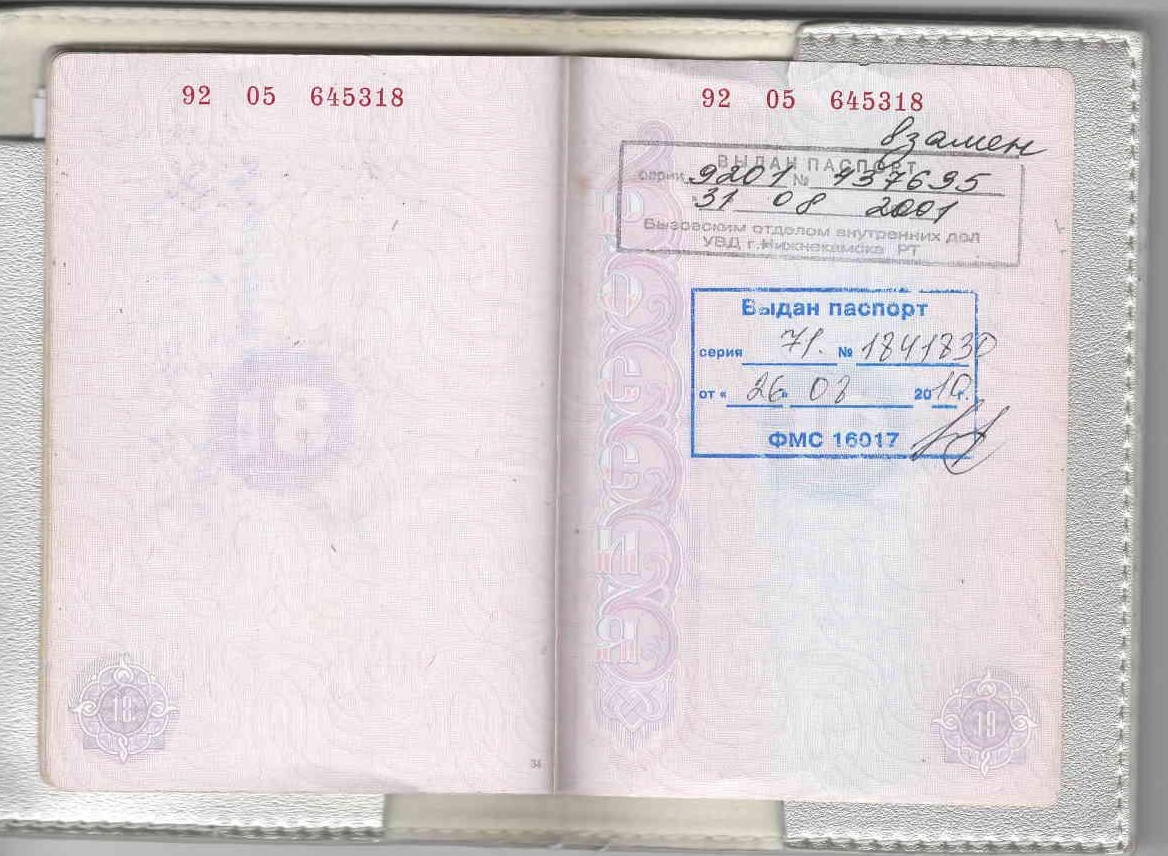 92 05 645318
18
34
92 05 645318
взамен
ВЫДАН ПАСПОРТ
серии 9201 № 437695
31 08 2001
Вызовским отделом внутренних дел
УВД г.Нижнекамска РТ
Выдан паспорт
серия 71. № 1841830
от « 26 » 08 2010г.
ФМС 16017
19